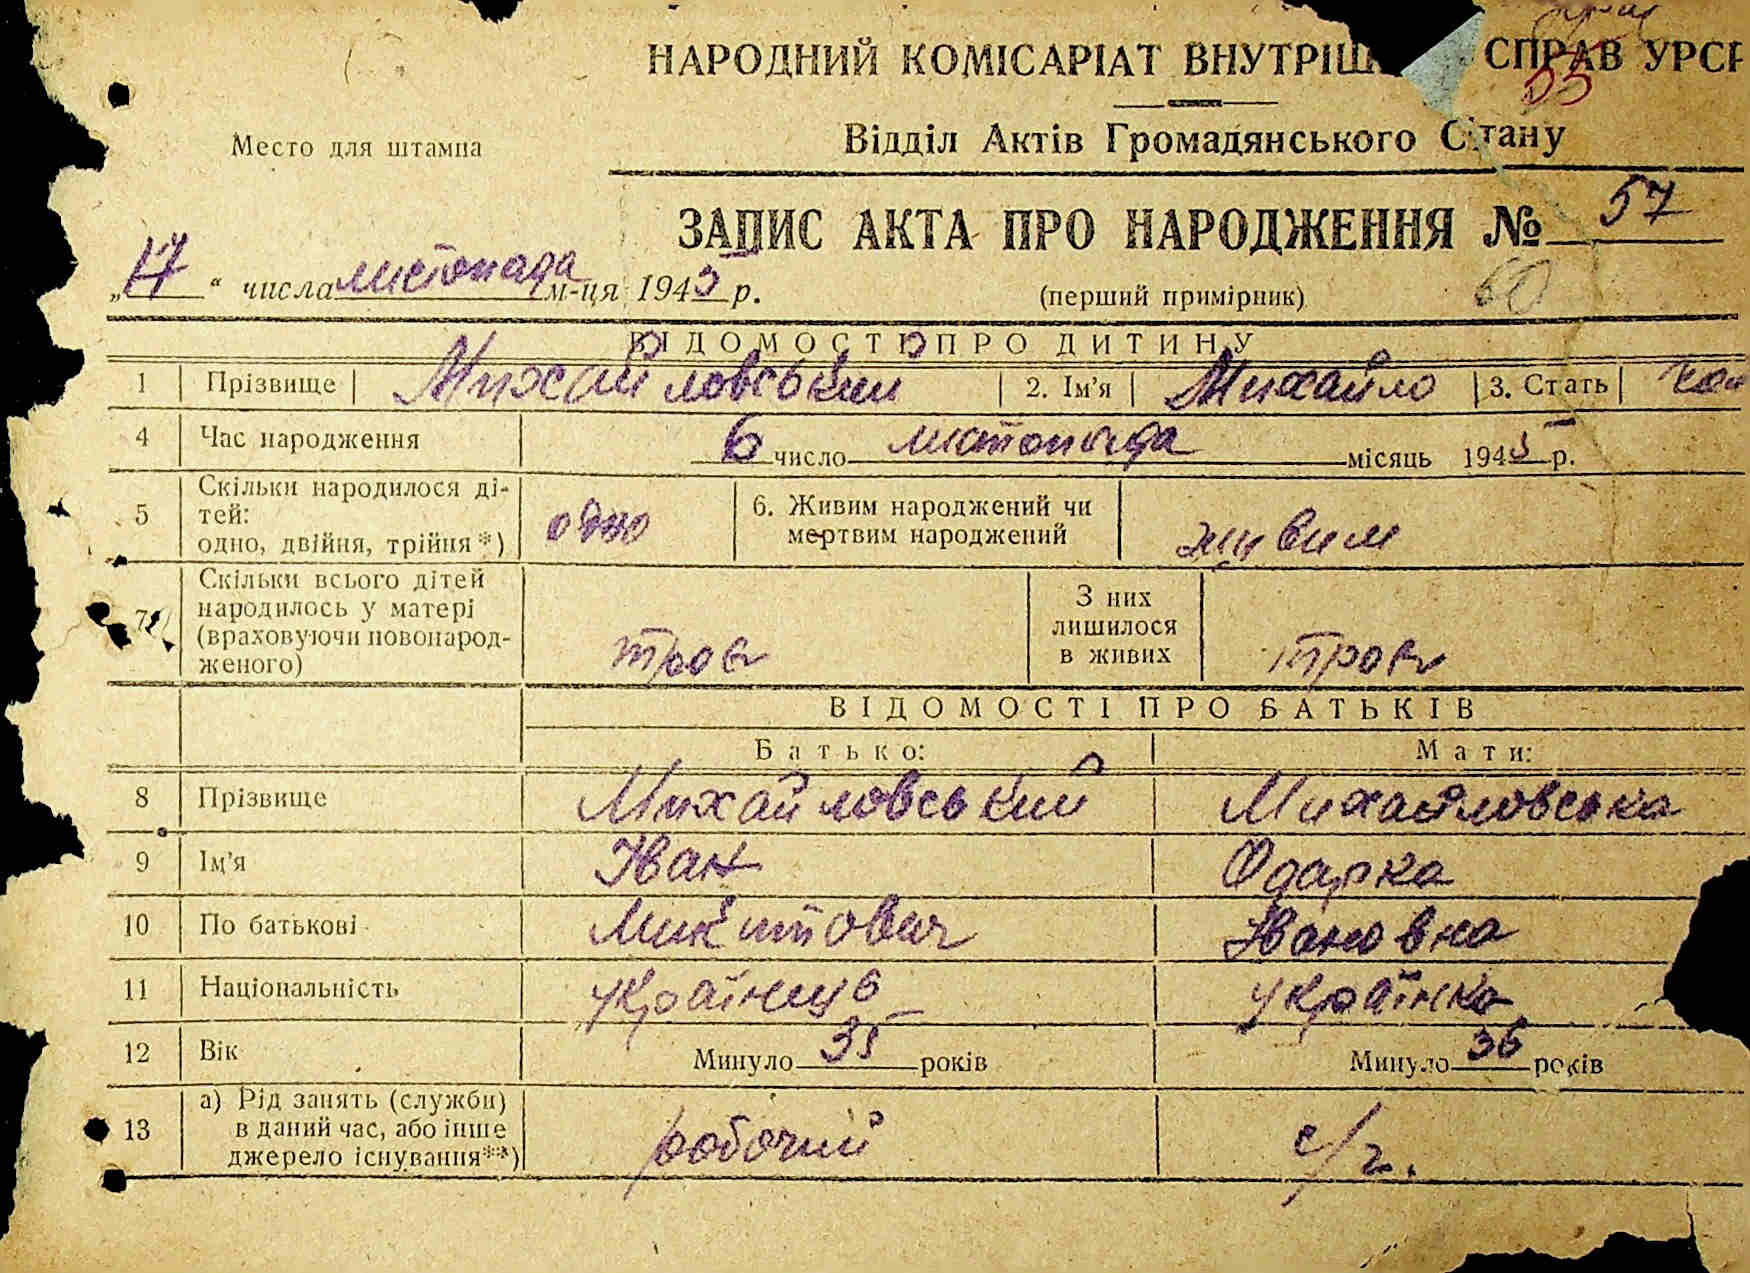 НАРОДНИЙ КОМІСАРІАТ СПРАВ УРСР
55
Відділ Актів Громадянського Стану
Место для штампа
ЗАПИС АКТА ПРО НАРОДЖЕННЯ № 57
„17“ числа листопада м-ця 1945 р.
(перший примірник) 60
ВІДОМОСТІ ПРО ДИТИНУ
1 Прізвище Михайловський 2. Ім'я Михайло 3. Стать
4 Час народження 6 число листопада місяць 1945 р.
5 Скільки народилося ді-
тей:
одно, двійня, трійня*) одно 6. Живим народжений чи
мертвим народжений живим
7 Скільки всього дітей
народилось у матері
(враховуючи новонарод-
женого) троє З них
лишилося
в живих троє
ВІДОМОСТІ ПРО БАТЬКІВ
Батько: Мати:
8 Прізвище Михайловський Михайловська
9 Ім'я Іван Одарка
10 По батькові Микитович Івановна
11 Національність українець українка
12 Вік Минуло 35 років Минуло 36 років
13 а) Рід занять (служби)
в даний час, або інше
джерело існування**) робочий с/г.